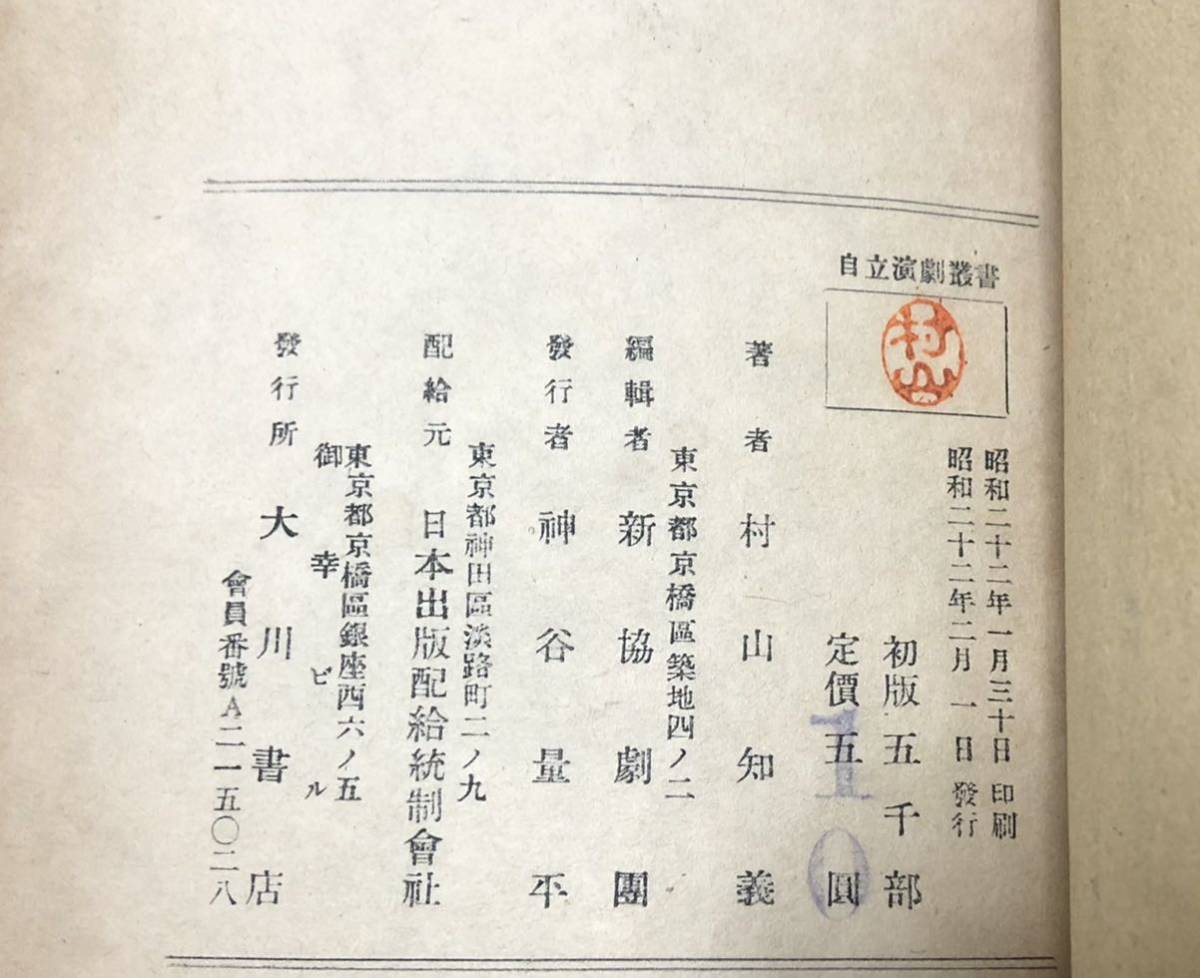 自立演劇叢書
村山
昭和二十二年一月三十日 印刷
昭和二十二年二月一日 發行
初版五千部
定價五圓
10
著者 村山知義
東京都京橋區築地四ノ二
編輯者 新協劇團
發行者 神谷量平
東京都神田區淡路町二ノ九
配給元 日本出版配給統制會社
東京都京橋區銀座西六ノ五
御幸ビル
發行所 大川書店
會員番號A二一五〇二八